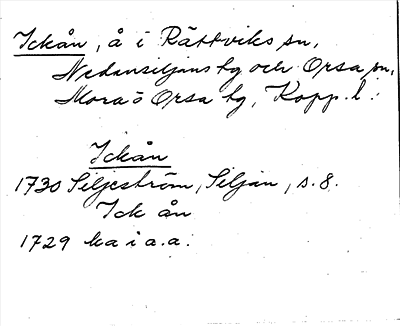 Ickån, å i Rättviks sn,
Nedansiljans tg och Orsa sn,
Mora o Orsa tg, Kopp. l:
Ickån
1730 Siljeström, Siljan, s. 8.
Ick ån
1729 ka i a.a.